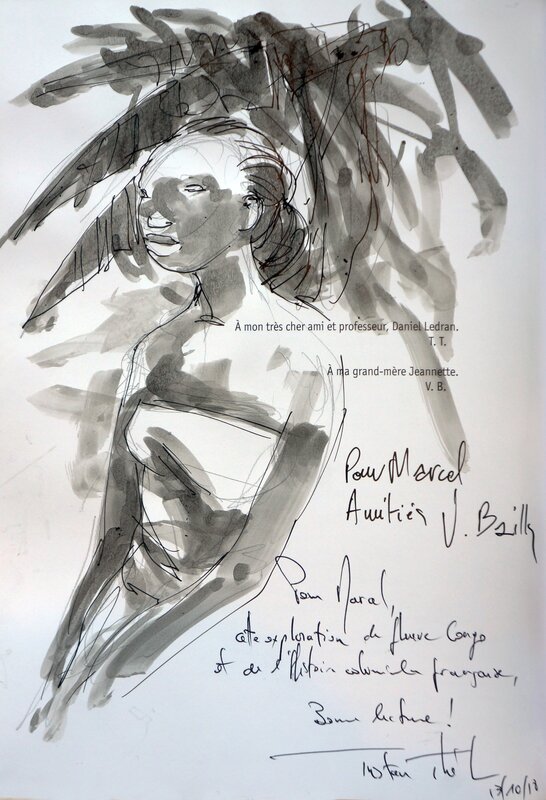 À mon très cher ami et professeur, Daniel Ledran.
T. T.
À ma grand-mère Jeannette.
V. B.
Pour Marcel
Amitiés V. Bailly
Pour Marcel,
cette exploration du fleuve Congo
et de l'histoire coloniale française,
Bonne lecture !
Tristan
13/10/18